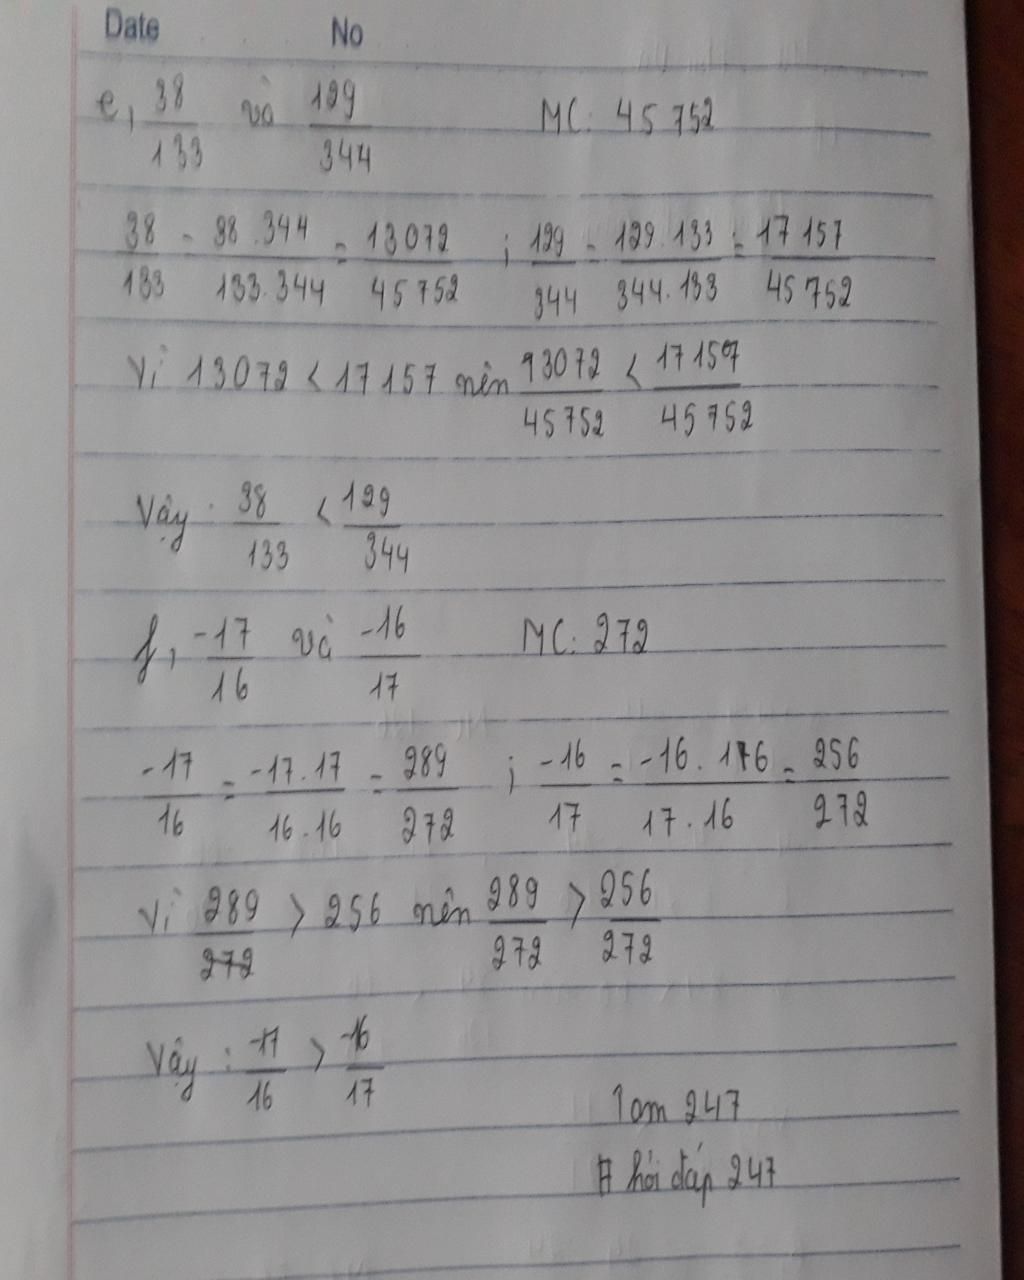 Date No
e, 38/133 và 129/344 MC: 45 752
38/133 = 38.344/133.344 = 13072/45752 ; 129/344 = 129.133/344.133 = 17157/45752
Vì 13072 < 17157 nên 13072/45752 < 17157/45752
Vậy : 38/133 < 129/344
f, -17/16 và -16/17 MC: 272
-17/16 = -17.17/16.16 = 289/272 ; -16/17 = -16.176/17.16 = 256/272
Vì 289/272 > 256 nên 289/272 > 256/272
Vậy : -17/16 > -16/17
247
# hỏi đáp 247